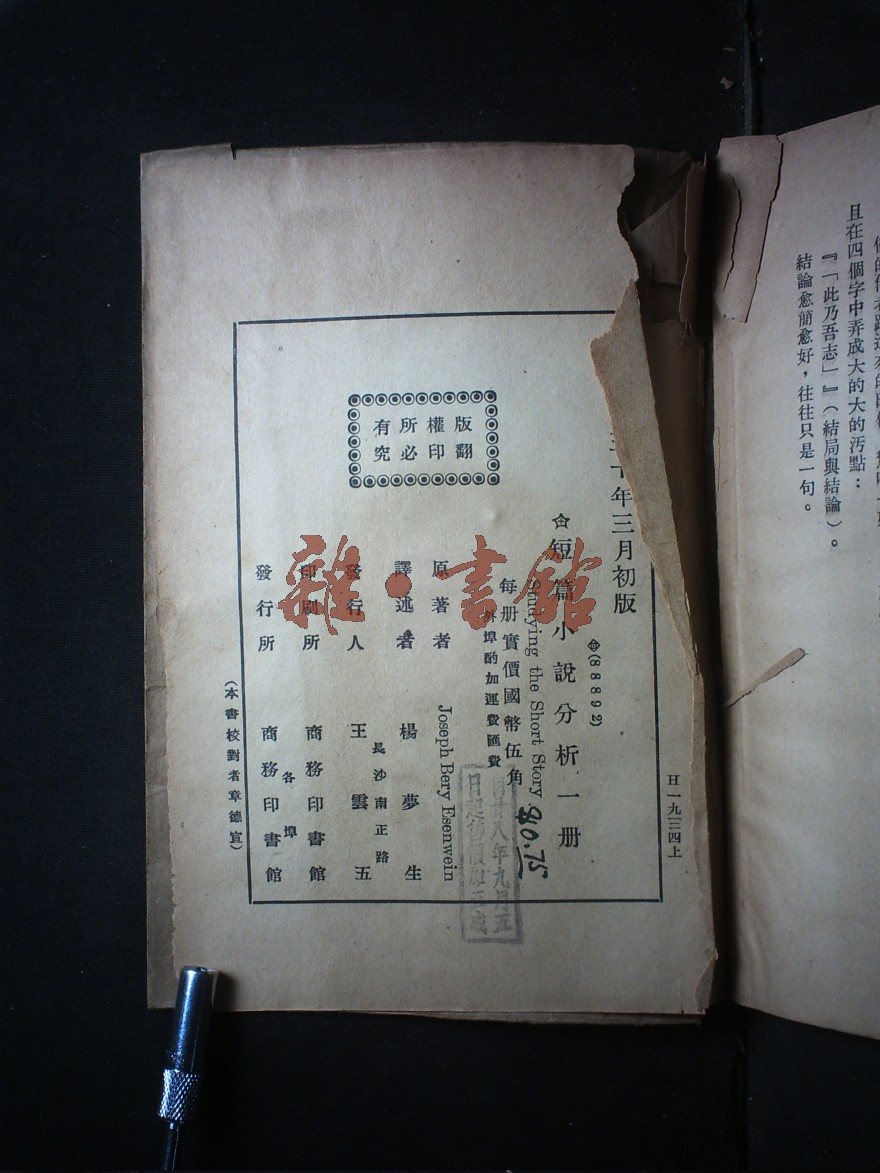 且在四個字中弄成大的大的汚點：
『「此乃吾志」』（結局與結論）。
結論愈簡愈好，往往只是一句。
版權所有
翻印必究
十年三月初版
(88892)
短篇小說分析一册
Studying the Short Story
每册實價國幣伍角
$0.75
外埠酌加運費匯費
廿八年九月五
原著者 Joseph Bery Esenwein
譯述者 楊夢生
長沙南正路
發行人 王雲五
印刷所 商務印書館
各埠
發行所 商務印書館
（本書校對者章德宣）
H一九三四上
雜·書館